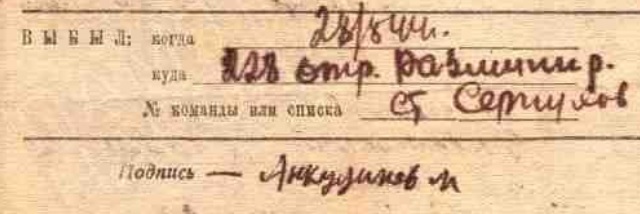 ВЫБЫЛ: когда 28/8 44г.
куда 228 отр. Различн р.
№ команды или списка ст Серпухов
Подпись — Анкудинов М